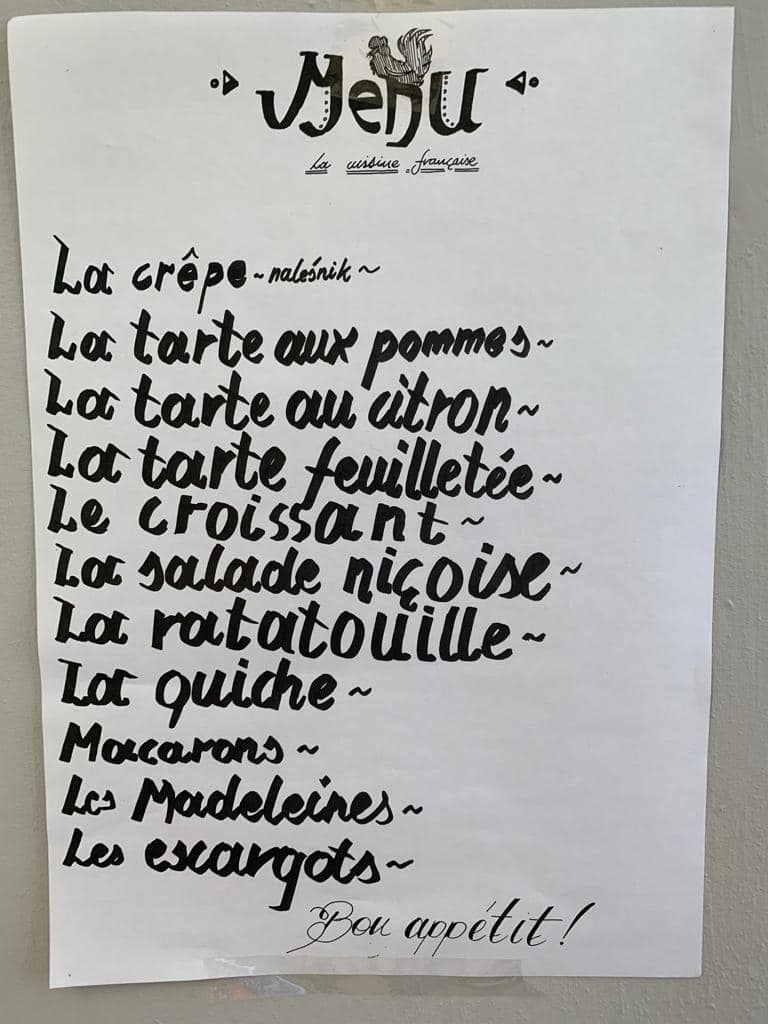 Menu
La cuisine française
La crêpe ~ naleśnik ~
La tarte aux pommes ~
La tarte au citron ~
La tarte feuilletée ~
Le croissant ~
La salade niçoise ~
La ratatouille ~
La quiche ~
Macarons ~
Les Madeleines ~
Les escargots ~
Bon appétit!